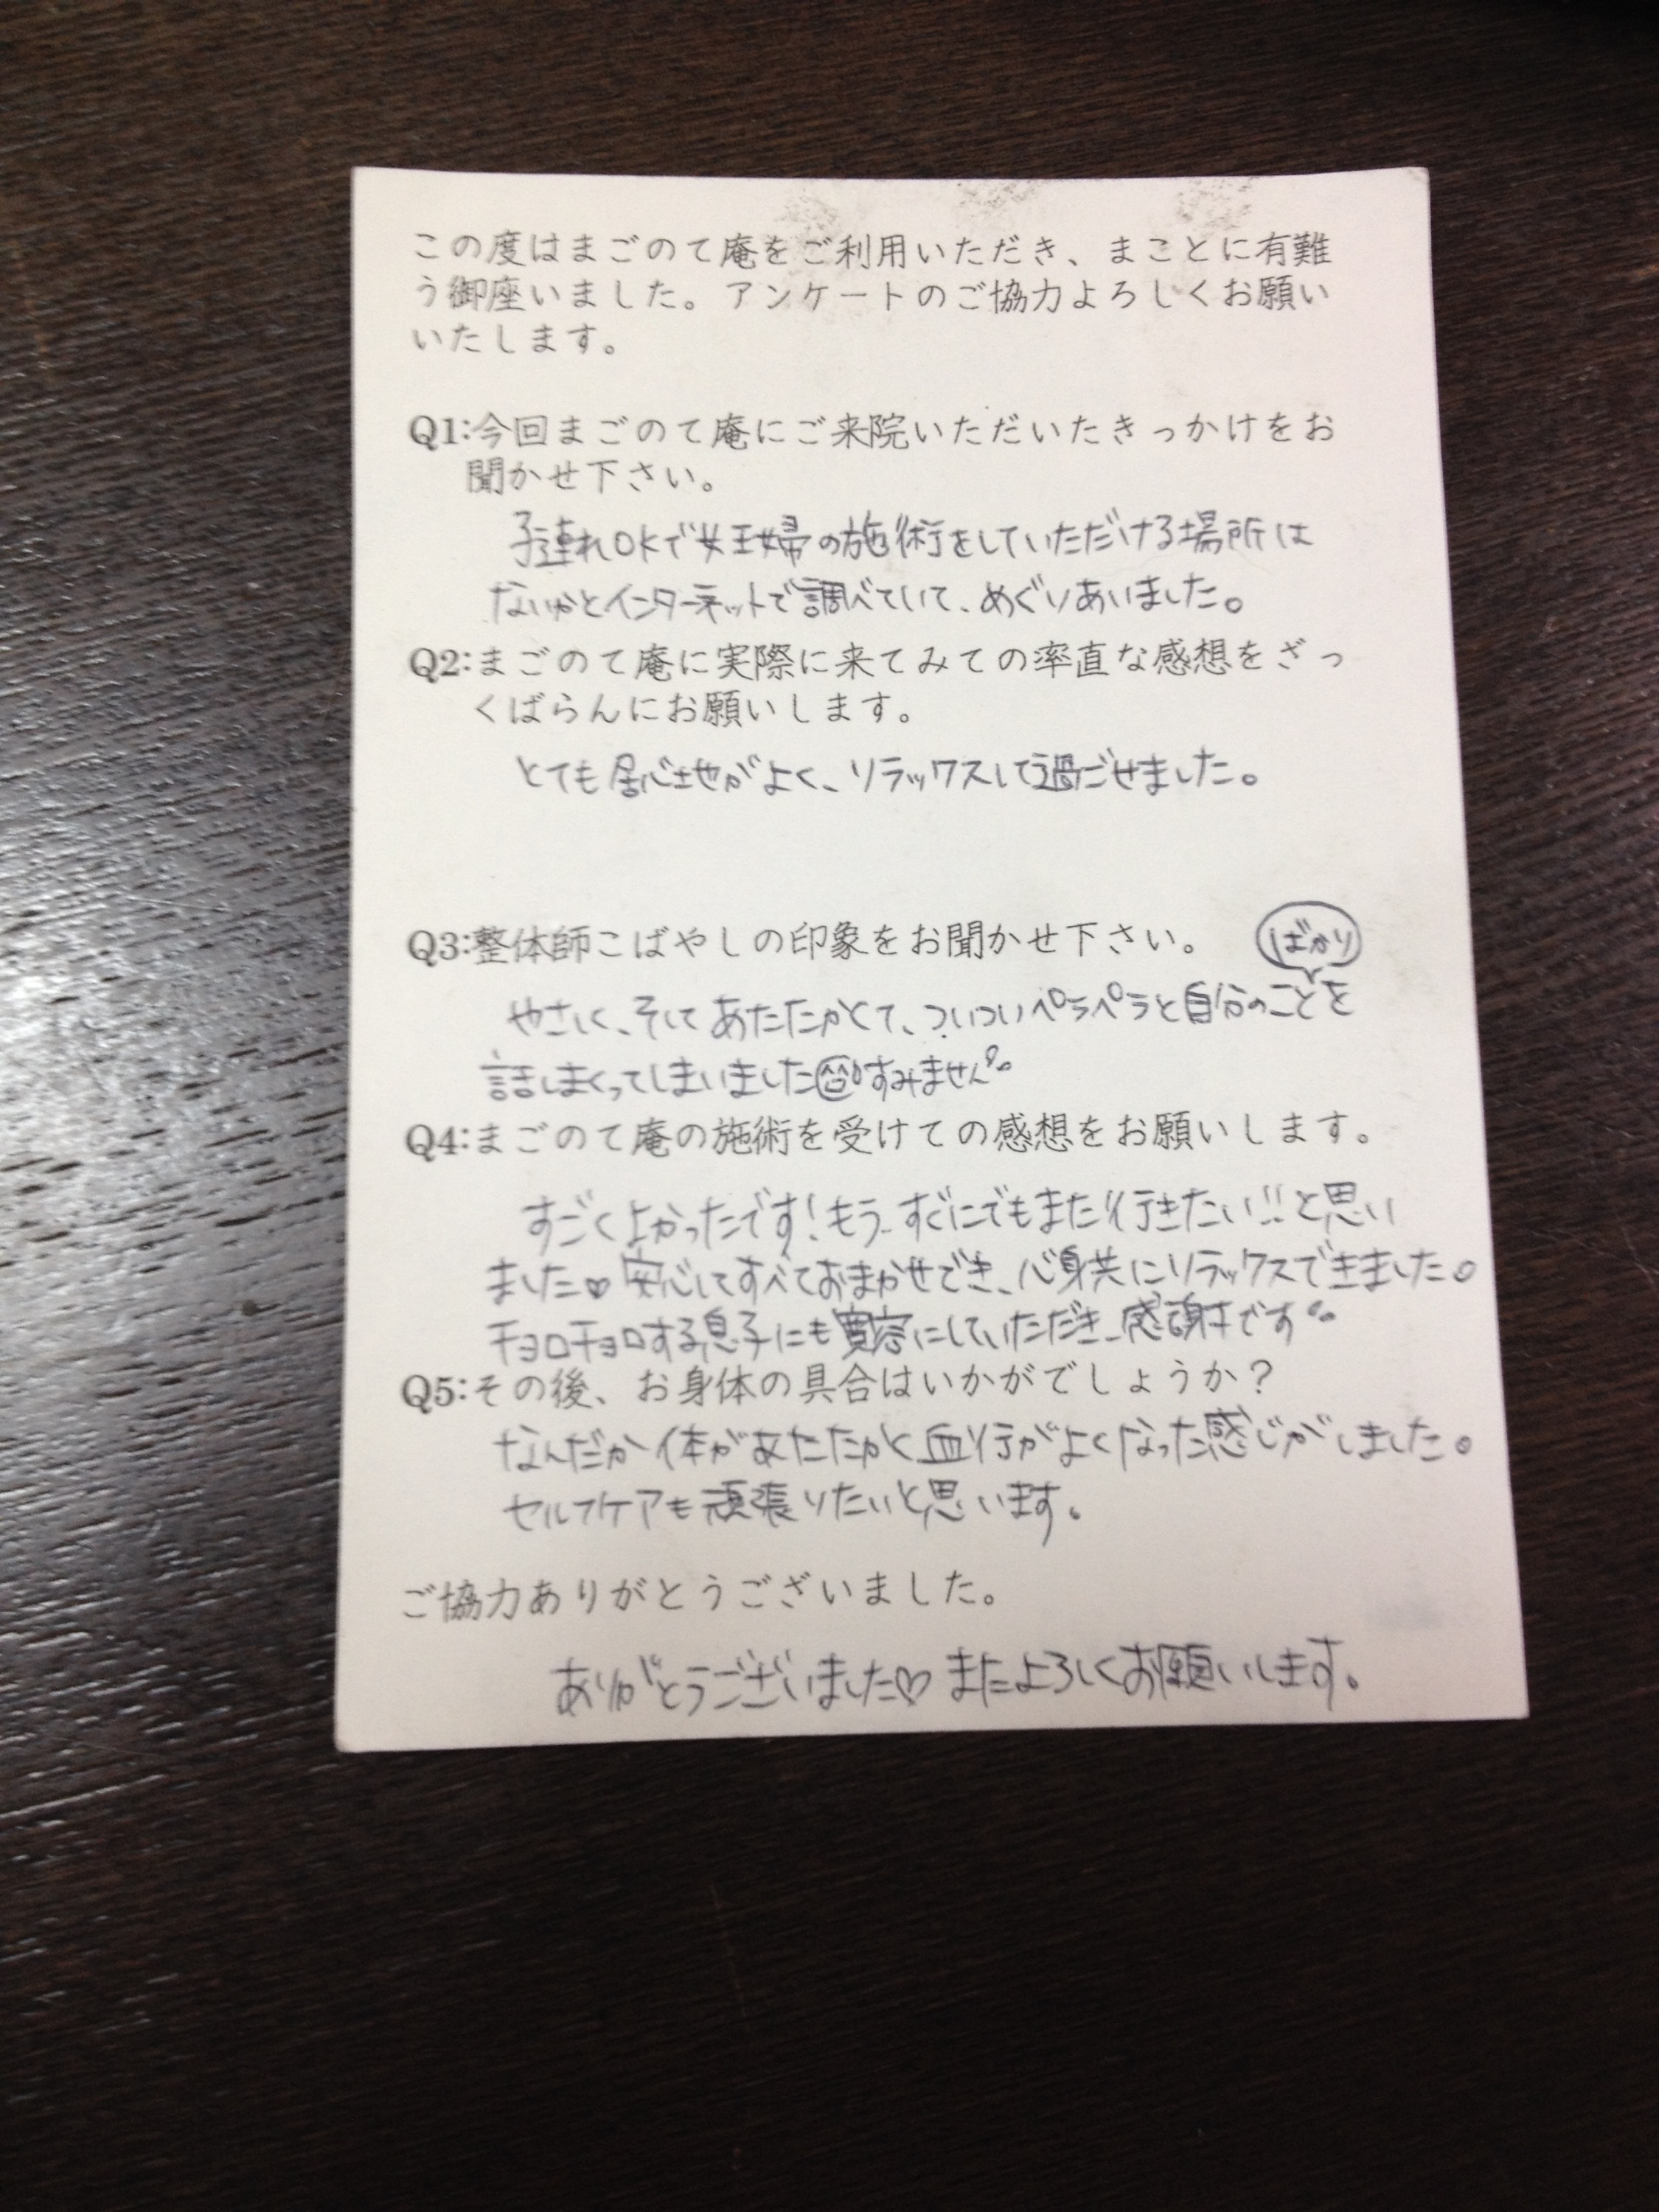 この度はまごのて庵をご利用いただき、まことに有難
う御座いました。アンケートのご協力よろしくお願い
いたします。
Q1:今回まごのて庵にご来院いただいたきっかけをお
聞かせ下さい。
子連れOKで妊婦の施術をしていただける場所は
ないかとインターネットで調べていて、めぐりあいました。
Q2:まごのて庵に実際に来てみての率直な感想をざっ
くばらんにお願いします。
とても居心地がよく、リラックスして過ごせました。
Q3:整体師こばやしの印象をお聞かせ下さい。
ばかり
やさしく、そして あたたかくて、ついついペラペラと自分のことを
話しまくってしまいました すみません
Q4:まごのて庵の施術を受けての感想をお願いします。
すごくよかったです!もう、すぐにでもまた行きたい!!と思い
ました♥ 安心してすべておまかせでき、心身共にリラックスできました。
チョロチョロする息子にも寛容にしていただき、感謝です
Q5:その後、お身体の具合はいかがでしょうか?
なんだか体があたたかく血行がよくなった感じがしました。
セルフケアも頑張りたいと思います。
ご協力ありがとうございました。
ありがとうございました♡ またよろしくお願いします。